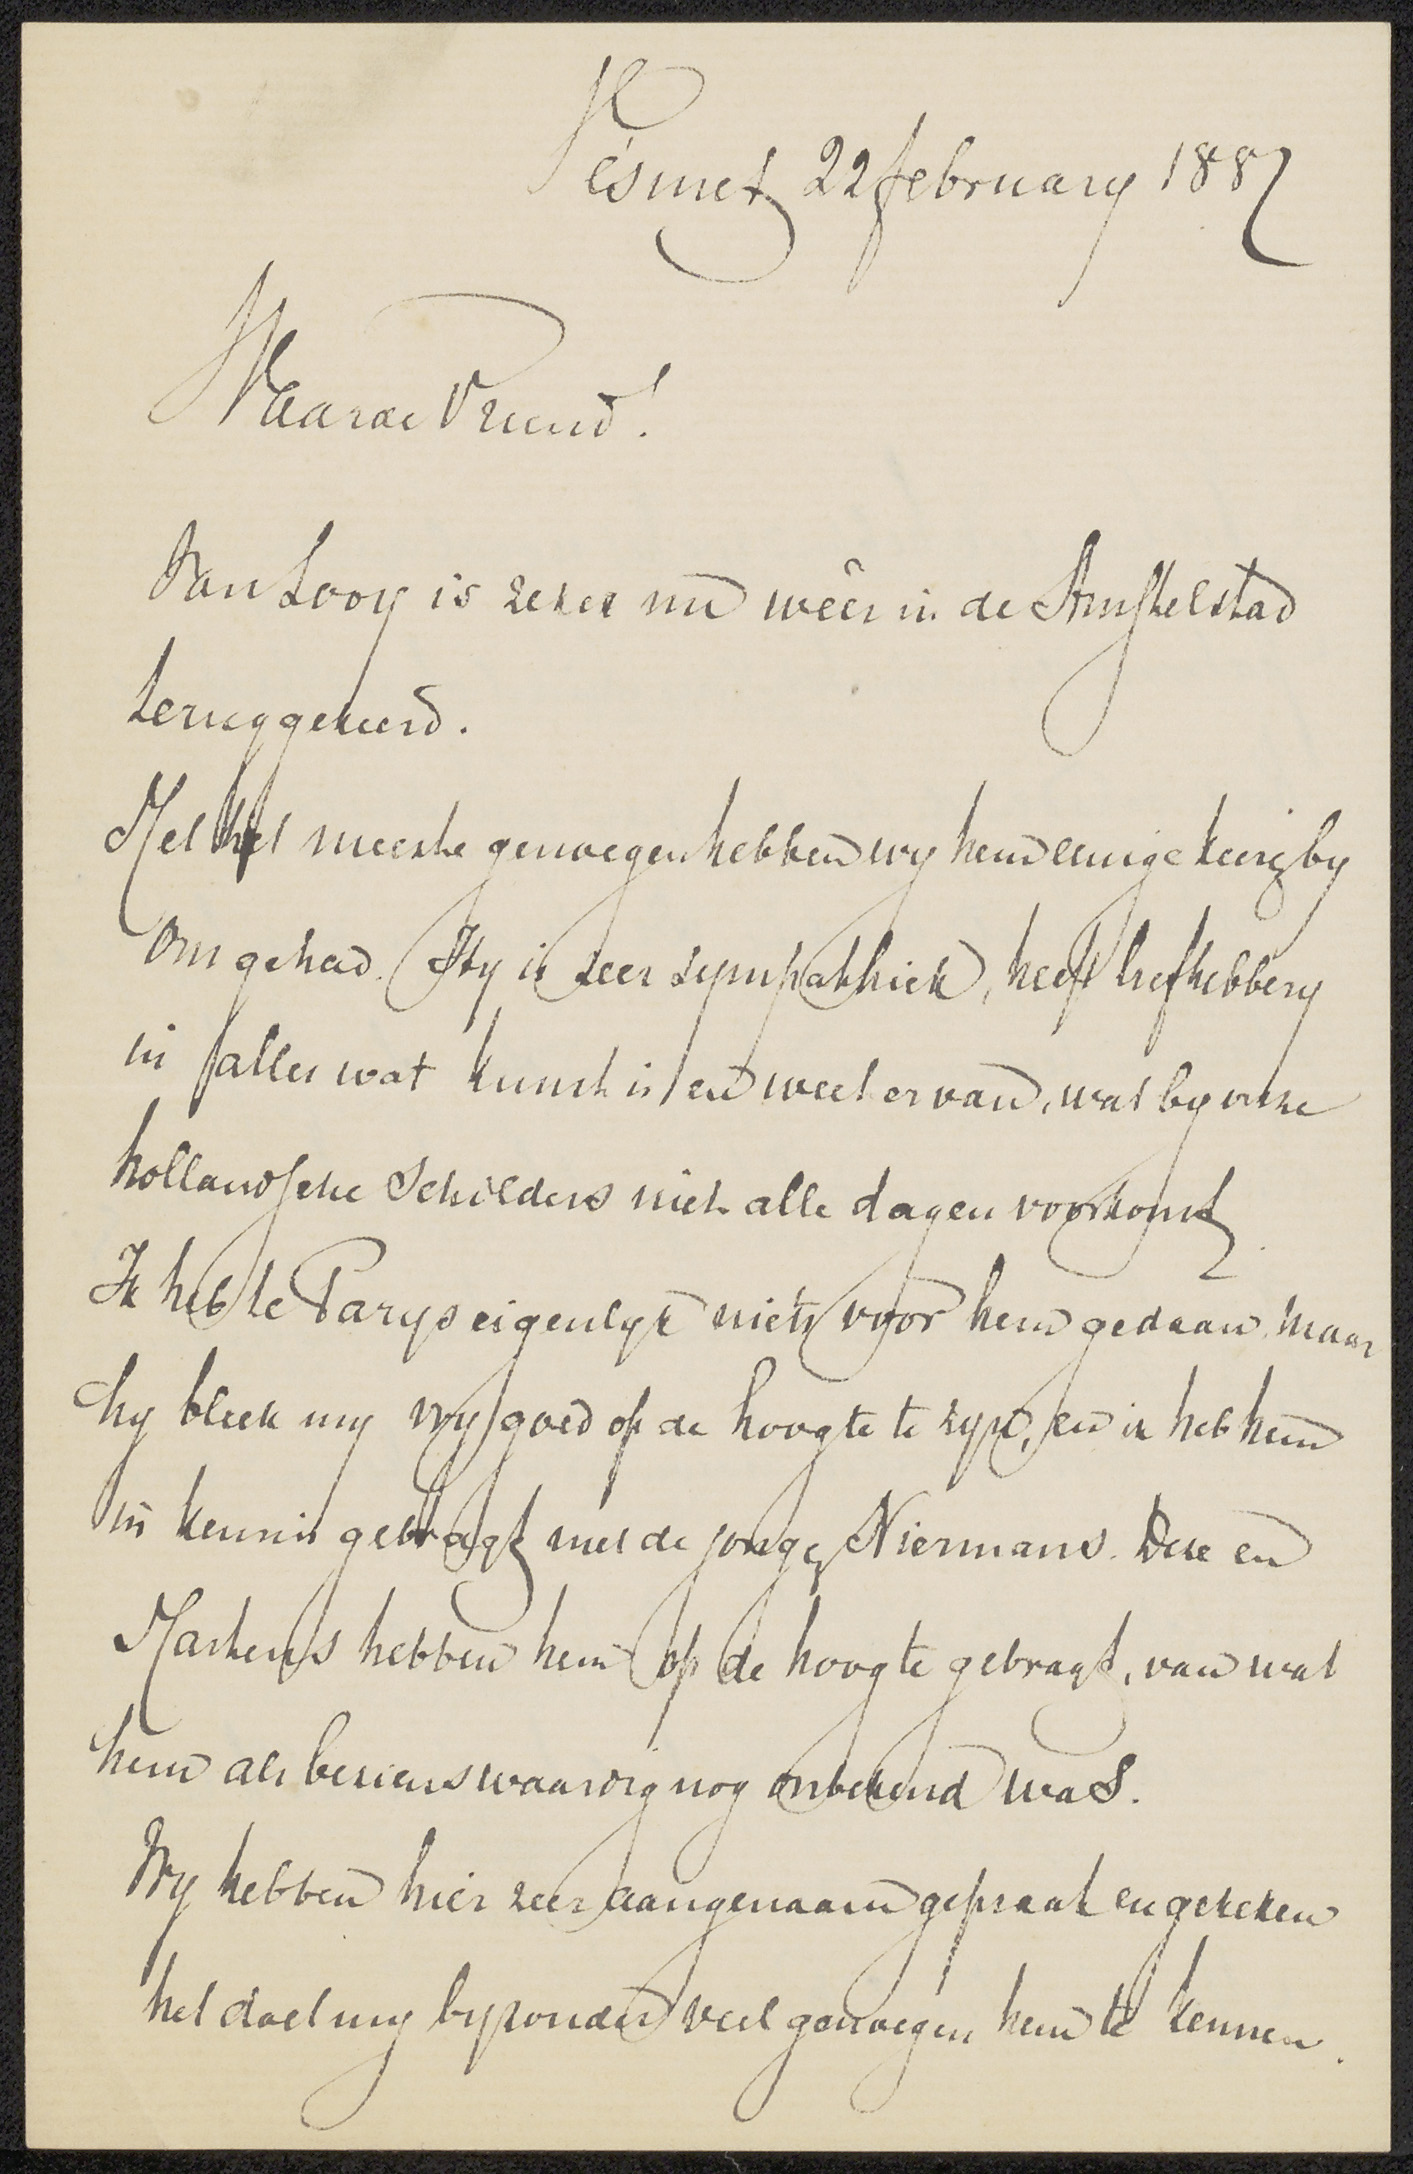 Vésinet 22 february 1887
Waarde Vriend!
Van Looy is zeker nu wêer in de Amstelstad
teruggekeerd.
Met het meeste genoegen hebben wy hem eenige keeren by
ons gehad. Hy is zeer sympathiek, heeft liefhebbery
in alles wat kunst is en weet er van, wat by onze
hollandsche Schilders niet alle dagen voorkomt.
Ik heb te Parys eigenlyk niets voor hem gedaan, maar
hy bleek my vry goed op de hoogte te zyn, en ik heb hem
in kennis gebragt met de jonge Niermans. Deze en
Martens hebben hem op de hoogte gebragt, van wat
hem als bezienswaardig nog onbekend was.
Wy hebben hier zeer aangenaam gepraat en gekeken
het doet my byzonder veel genoegen hem te kennen.